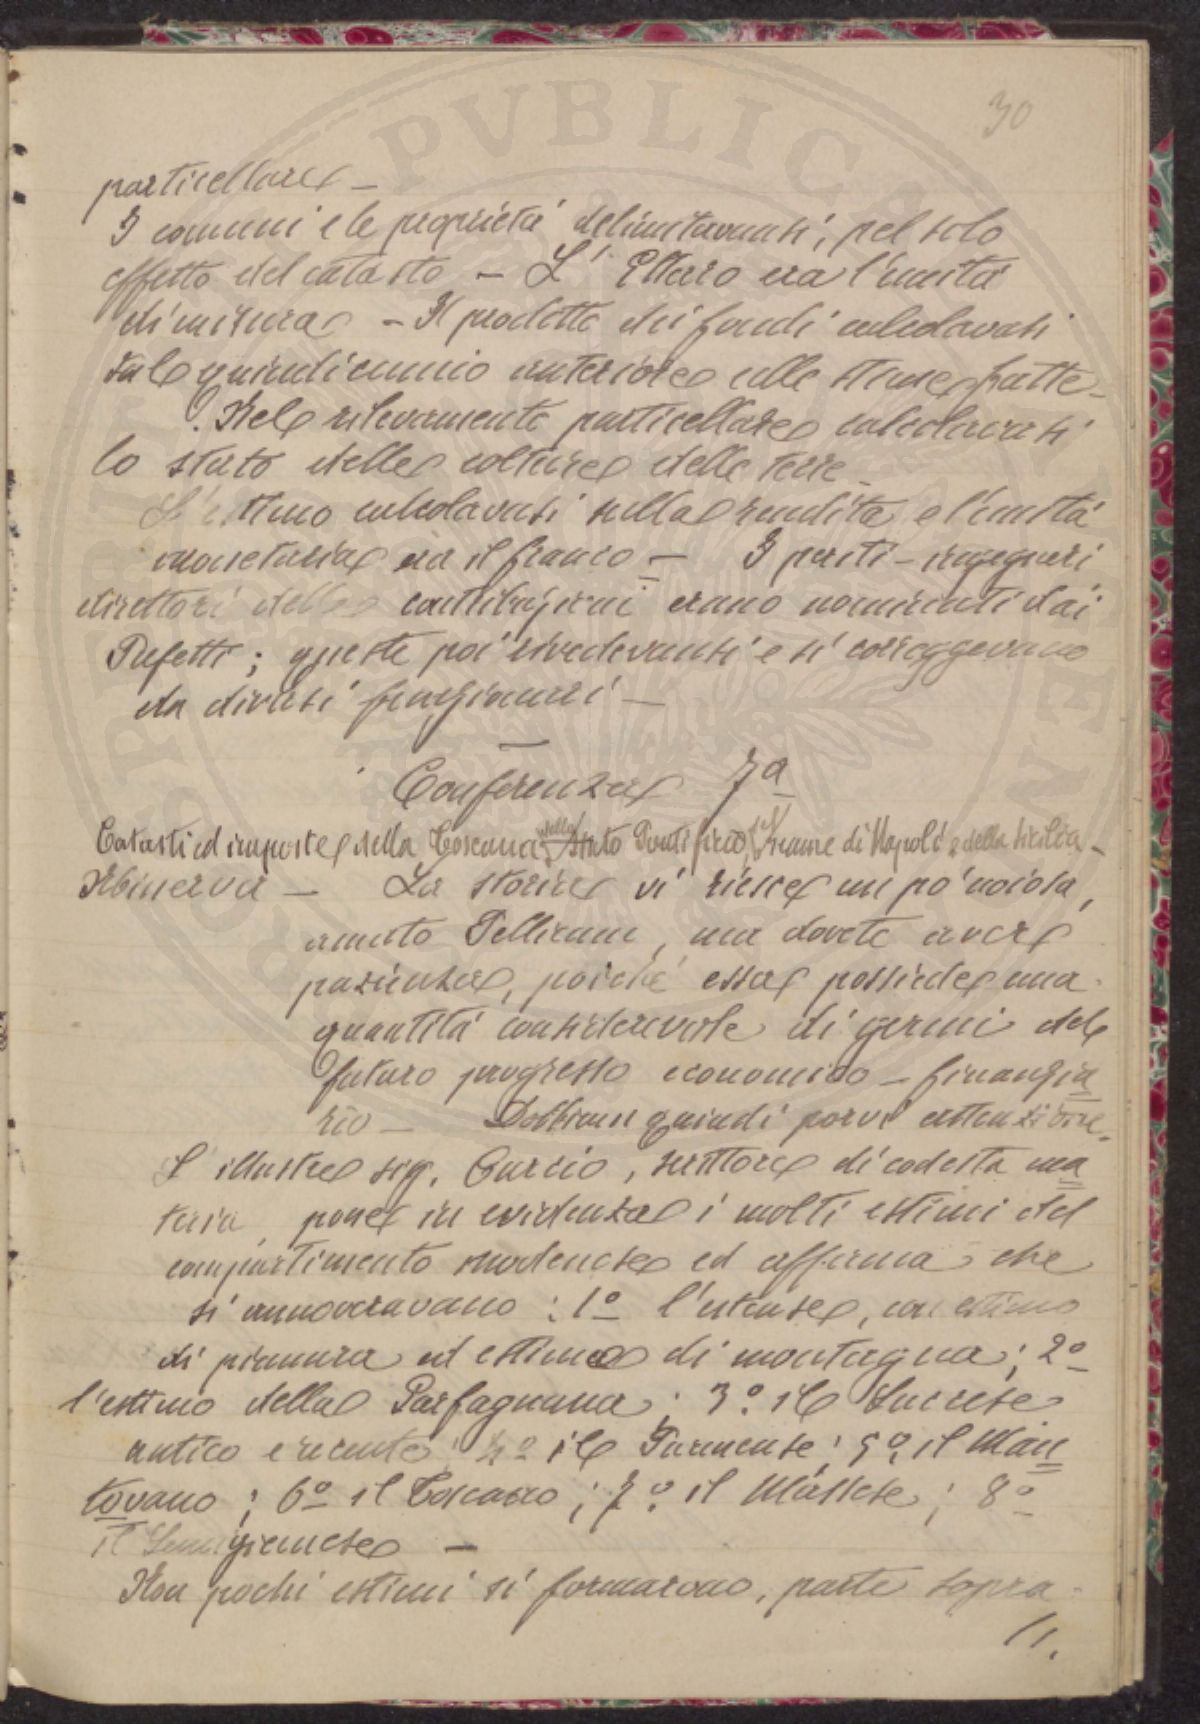 30
particellare —
I comuni e le proprietà delimitavansi, pel solo
effetto del catasto — L' Ettaro era l'unità
di misura — Il prodotto dei fondi calcolavasi
sul quindicennio anteriore alle stime fatte —
Nel rilevamento particellare calcolavasi
lo stato delle colture delle terre —
L'estimo calcolavasi sulla rendita e l'unità
monetaria era il franco — I periti - ingegneri
direttori delle contribuzioni erano nominati dai
Prefetti; queste poi rivedevansi e si correggevano
da diversi funzionari —
Conferenza 7a
Catasti ed imposte della Toscana, nello Stato Pontificio, Reame di Napoli e della Sicilia —
Minerva — La storia vi riesce un po' noiosa,
amato Tellirami, ma dovete avere
pazienza, poiché essa possiede una
quantità considerevole di germi del
futuro progresso economico - finanzia
rio — Dobbiam quindi porvi attenzione.
L'illustre sig. Curcio, scrittore di codesta ma
teria, pone in evidenza i molti estimi del
compartimento modenese ed afferma che
si annoveravano: 1º l'estense, con estimo
di pianura ed estimo di montagna; 2º
l'estimo della Garfagnana; 3º il Lucchese
antico e recente; 4º il Parmense; 5º, il Man
tovano; 6º il Toscano; 7º il Massese; 8º
il Lunigianese —
Non pochi estimi si formarono, parte sopra
11.
PVBLICA